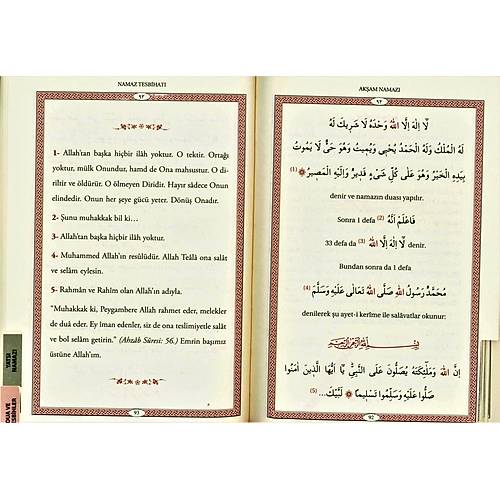 NAMAZ TESBİHATI
٩٣
1- Allah'tan başka hiçbir ilâh yoktur. O tektir. Ortağı
yoktur, mülk Onundur, hamd de Ona mahsustur. O di-
riltir ve öldürür. O ölmeyen Diridir. Hayır sâdece Onun
elindedir. Onun her şeye gücü yeter. Dönüş Onadır.
2- Şunu muhakkak bil ki…
3- Allah'tan başka hiçbir ilâh yoktur.
4- Muhammed Allah'ın resûlüdür. Allah Teâlâ ona salât
ve selâm eylesin.
5- Rahmân ve Rahîm olan Allah'ın adıyla.
"Muhakkak ki, Peygambere Allah rahmet eder, melekler
de duâ eder. Ey îman edenler, siz de ona teslimiyetle salât
ve bol selâm getirin." (Ahzâb Sûresi: 56.) Emrin başımız
üstüne Allah'ım.
93
YATSI
NAMAZI
DUA VE
AKŞAM NAMAZI
٩٢
لَٓا اِلٰهَ اِلَّا اللهُ وَحْدَهُ لَا شَرِيكَ لَهُ
لَهُ الْمُلْكُ وَلَهُ الْحَمْدُ يُحْيِى وَيُمِيتُ وَهُوَ حَىٌّ لَا يَمُوتُ
بِيَدِهِ الْخَيْرُ وَهُوَ عَلٰى كُلِّ شَىْءٍ قَدِيرٌ وَاِلَيْهِ الْمَصِيرُ (1)
denir ve namazın duası yapılır.
Sonra 1 defa (2) فَاعْلَمْ اَنَّهُ
33 defa da (3) لَٓا اِلٰهَ اِلَّا اللهُ denir.
Bundan sonra da 1 defa
مُحَمَّدٌ رَسُولُ اللهِ صَلَّى اللهُ تَعَالٰى عَلَيْهِ وَسَلَّمَ (4)
denilerek şu ayet-i kerîme ile salâvatlar okunur:
بِسْمِ اللهِ الرَّحْمٰنِ الرَّحِيمِ
اِنَّ اللهَ وَمَلٰٓئِكَتَهُ يُصَلُّونَ عَلَى النَّبِىِّ يَٓا اَيُّهَا الَّذِينَ اٰمَنُوا
صَلُّوا عَلَيْهِ وَسَلِّمُوا تَسْلِيمًا لَبَّيْكَ... (5)
92